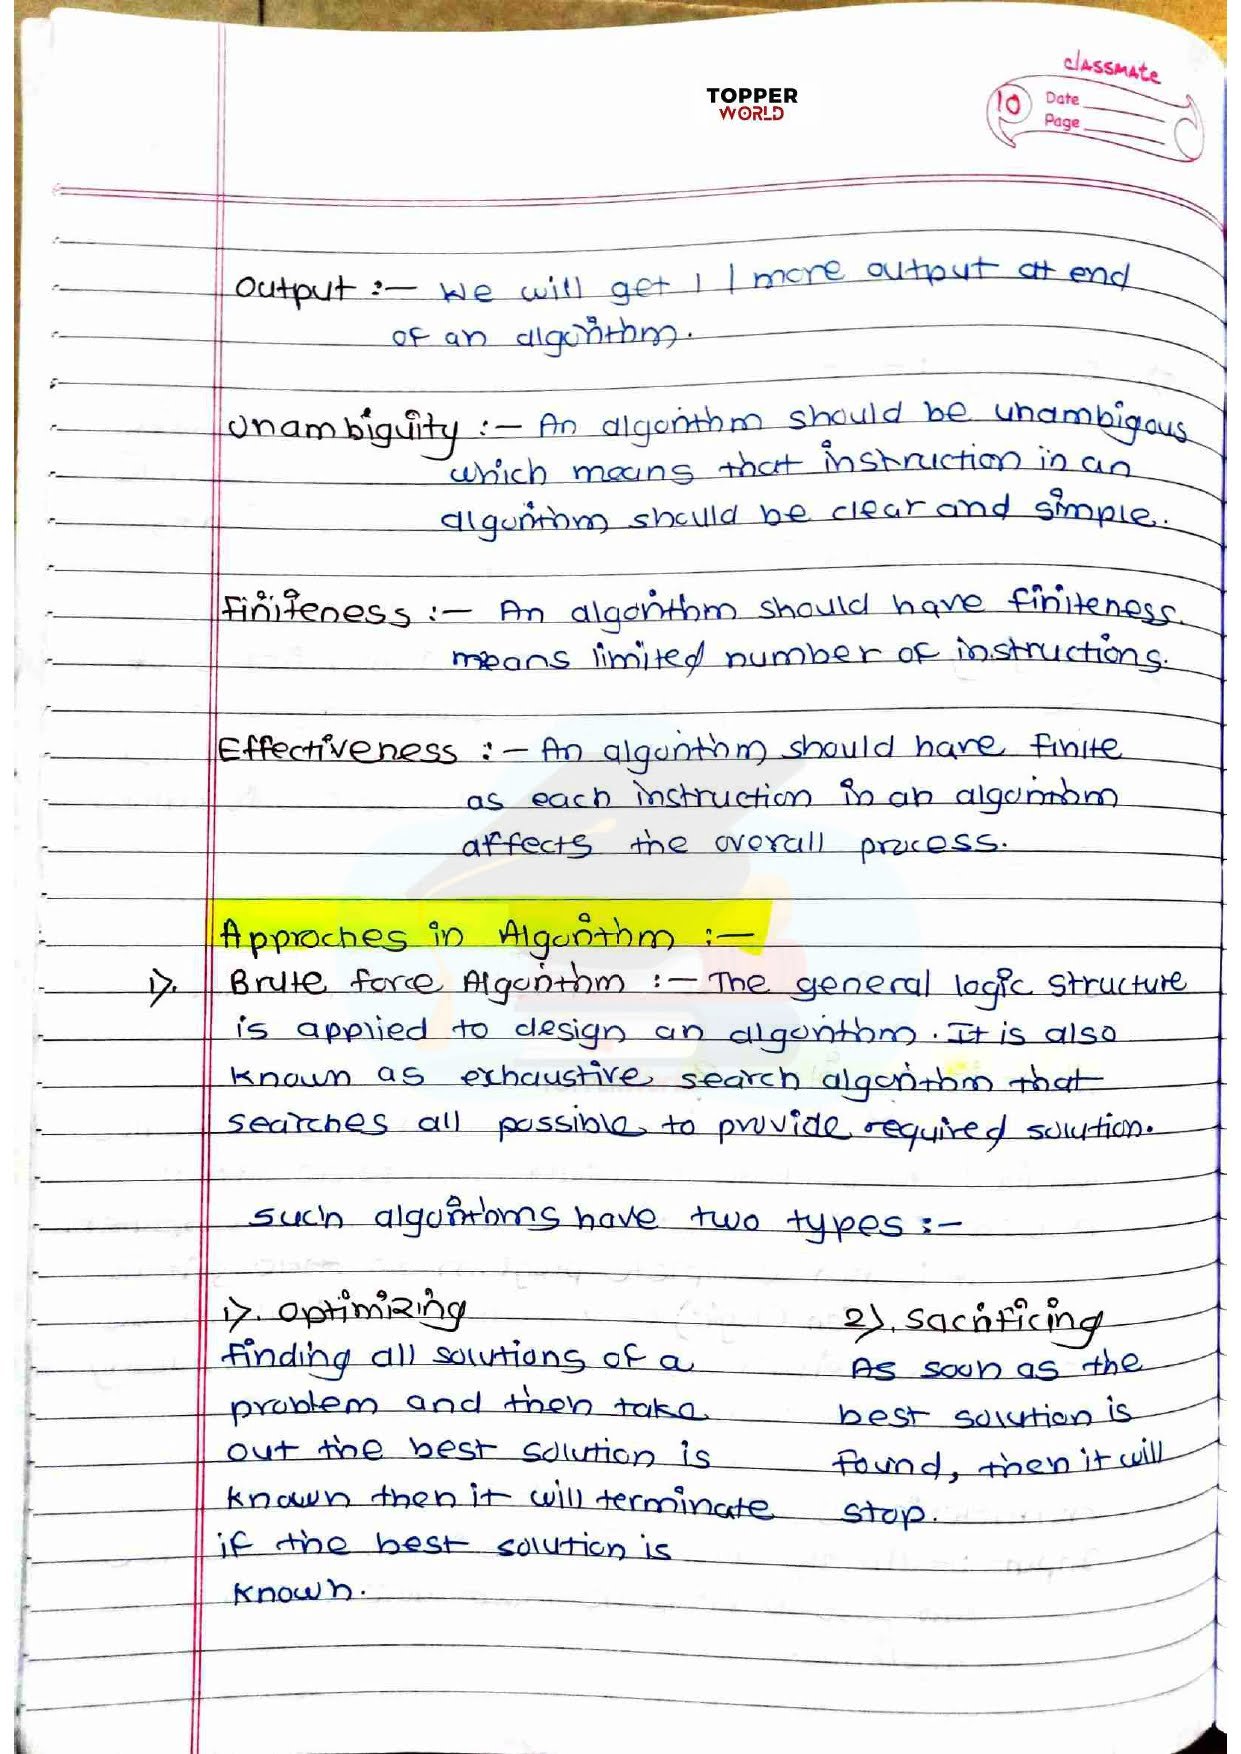 classmate
TOPPER
WORLD
10
Date
Page
Output :- We will get 1 / more output at end
of an algorithm.
Unambiguity :- An algorithm should be unambigous
which means that instruction in an
algorithm should be clear and simple.
Finiteness :- An algorithm should have finiteness
means limited number of instructions.
Effectiveness :- An algorithm should have finite
as each instruction in an algorithm
affects the overall process.
Approches in Algorithm :-
1). Brute force Algorithm :- The general logic structure
is applied to design an algorithm. It is also
known as exhaustive search algorithm that
searches all possible to provide required solution.
such algorithms have two types :-
1). Optimizing
finding all solutions of a
problem and then take
out the best solution is
known then it will terminate
if the best solution is
known.
2). Sacrificing
As soon as the
best solution is
found, then it will
stop.